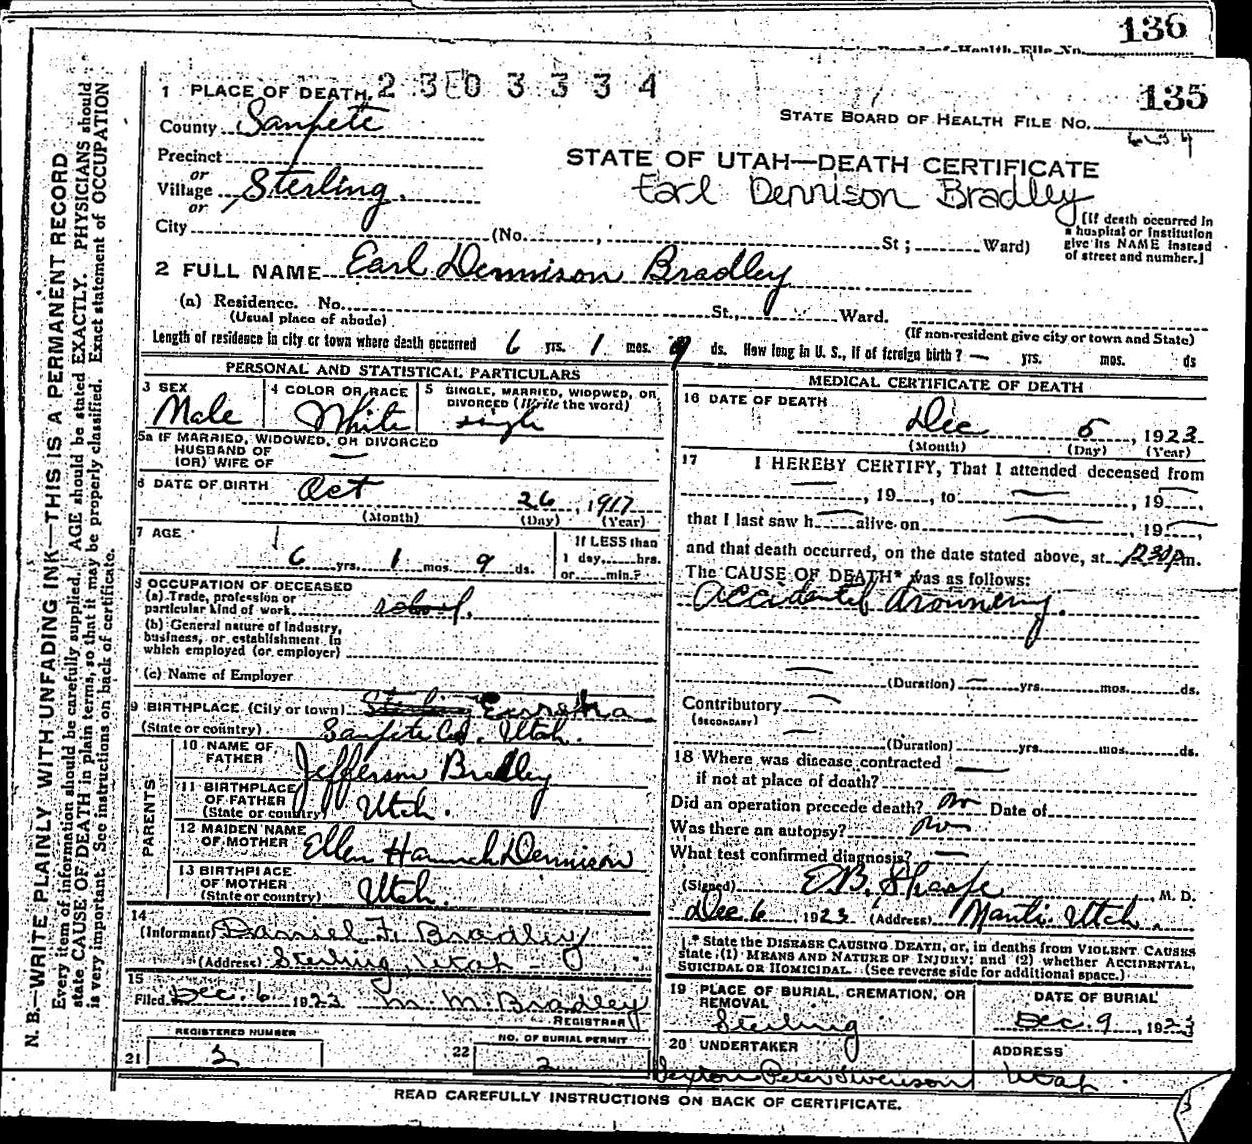 136
Board of Health File No.
135
1 PLACE OF DEATH. 2 3 0 3 3 3 4
STATE BOARD OF HEALTH FILE NO.
County Sanpete
STATE OF UTAH—DEATH CERTIFICATE
Precinct
or
Village Sterling.
or
Earl Dennison Bradley
City (No. , St ; Ward)
[If death occurred in
a hospital or institution
give its NAME instead
of street and number.]
2 FULL NAME Earl Dennison Bradley
(a) Residence. No. St., Ward.
(Usual place of abode)
(If non-resident give city or town and State)
Length of residence in city or town where death occurred 6 yrs. 1 mos. 9 ds. How long in U. S., if of foreign birth? — yrs. mos. ds
PERSONAL AND STATISTICAL PARTICULARS
3 SEX
Male
4 COLOR OR RACE
White
5 SINGLE, MARRIED, WIDOWED, OR
DIVORCED (Write the word)
single
5a IF MARRIED, WIDOWED, OR DIVORCED
HUSBAND OF
(OR) WIFE OF —
6 DATE OF BIRTH Oct 26, 1917
(Month) (Day) (Year)
7 AGE
6 yrs. 1 mos. 9 ds.
If LESS than
1 day, hrs.
or min.?
8 OCCUPATION OF DECEASED
(a) Trade, profession or
particular kind of work school.
(b) General nature of industry,
business, or establishment in
which employed (or employer)
(c) Name of Employer
9 BIRTHPLACE (City or town) Sterling Eureka
(State or country) Sanpete Co. Utah.
PARENTS
10 NAME OF
FATHER Jefferson Bradley
11 BIRTHPLACE
OF FATHER
(State or country) Utah.
12 MAIDEN NAME
OF MOTHER Ellen Hannah Dennison
13 BIRTHPLACE
OF MOTHER
(State or country) Utah.
14
(Informant) Daniel F. Bradley
(Address) Sterling, Utah
15
Filed Dec. 6 1923 M. M. Bradley
REGISTRAR
REGISTERED NUMBER
21 2
NO. OF BURIAL PERMIT
22 2
MEDICAL CERTIFICATE OF DEATH
16 DATE OF DEATH
Dec 5, 1923
(Month) (Day) (Year)
17 I HEREBY CERTIFY, That I attended deceased from
—, 19 , to —, 19 —
that I last saw h — alive on —, 19 —
and that death occurred, on the date stated above, at 1230 p m.
The CAUSE OF DEATH* was as follows:
Accidental drowning.
—
(Duration) — yrs. mos. ds.
Contributory —
(SECONDARY)
—
(Duration) yrs. mos. ds.
18 Where was disease contracted
if not at place of death? —
Did an operation precede death? no Date of
Was there an autopsy? no
What test confirmed diagnosis? —
(Signed) , M. D.
Dec 6, 1923 (Address) Manti Utah.
* State the DISEASE CAUSING DEATH, or, in deaths from VIOLENT CAUSES
state (1) MEANS AND NATURE OF INJURY; and (2) whether ACCIDENTAL,
SUICIDAL OR HOMICIDAL. (See reverse side for additional space.)
19 PLACE OF BURIAL, CREMATION, OR
REMOVAL
Sterling
DATE OF BURIAL
Dec. 9, 1923
20 UNDERTAKER
Sexton Peter Swenson
ADDRESS
Utah
READ CAREFULLY INSTRUCTIONS ON BACK OF CERTIFICATE.
N. B.—WRITE PLAINLY WITH UNFADING INK—THIS IS A PERMANENT RECORD
Every item of information should be carefully supplied. AGE should be stated EXACTLY. PHYSICIANS should
state CAUSE OF DEATH in plain terms, so that it may be properly classified. Exact statement of OCCUPATION
is very important. See instructions on back of certificate.